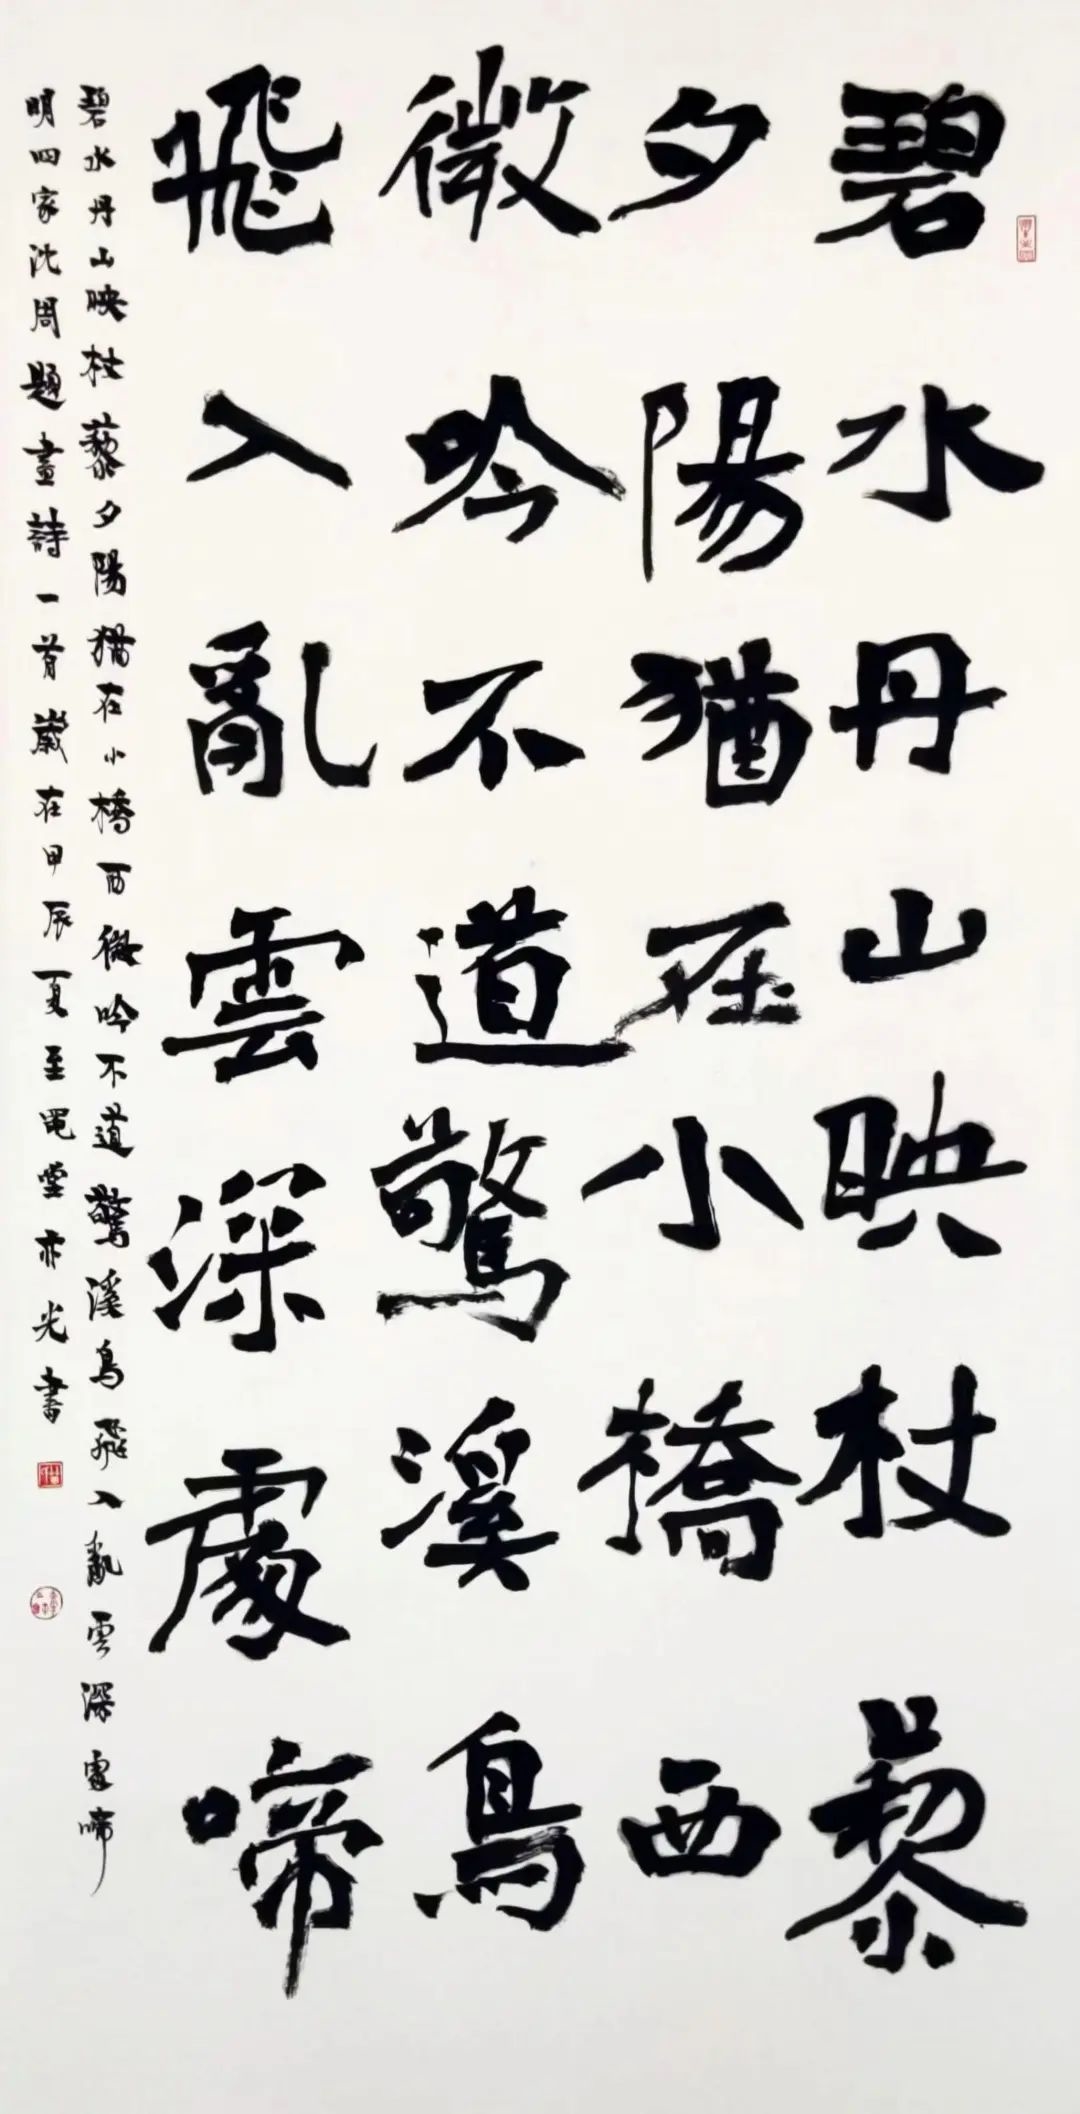 碧水丹山映杖藜
夕陽猶在小橋西
微吟不道驚溪鳥
飛入亂雲深處啼
碧水丹山映杖藜夕陽猶在小橋西微吟不道驚溪鳥飛入亂雲深處啼
明四家沈周題畫詩一首歲在甲辰夏至黽堂亦光書